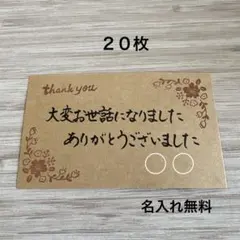 ２０枚
thank you
大変お世話になりました
ありがとうございました
〇〇
名入れ無料